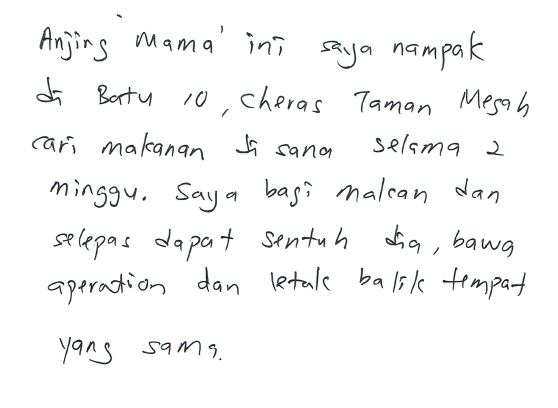 Anjing 'Mama' ini saya nampak
di Batu 10, Cheras Taman Megah
cari makanan di sana selama 2
minggu. Saya bagi makan dan
selepas dapat sentuh dia, bawa
operation dan letak balik tempat
yang sama.